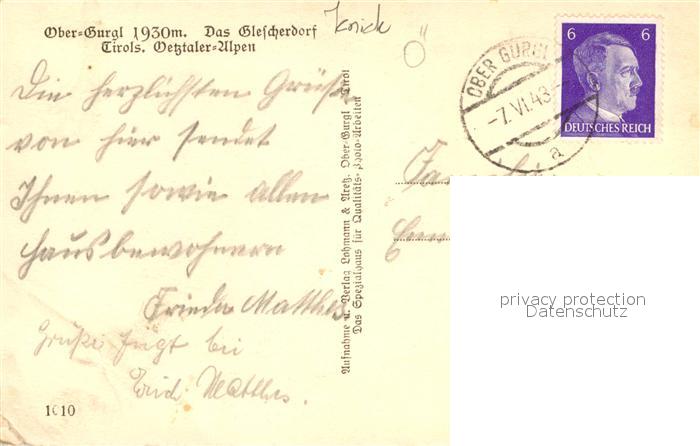 Ober-Gurgl 1930m. Das Gletscherdorf
Tirols. Oetztaler-Alpen
Knick
Die herzlichsten Grüße
von hier sendet
Ihnen sowie allen
Hausbewohnern
Frieda Matthes
Grüße fügt bei
Matthes.
1010
Aufnahme u. Verlag Lohmann & Aretz, Ober-Gurgl Tirol
Das Spezialhaus für Qualitäts-Photo-Arbeiten
OBER GURGL
-7.VI.43
a
6 6
DEUTSCHES REICH
privacy protection
Datenschutz